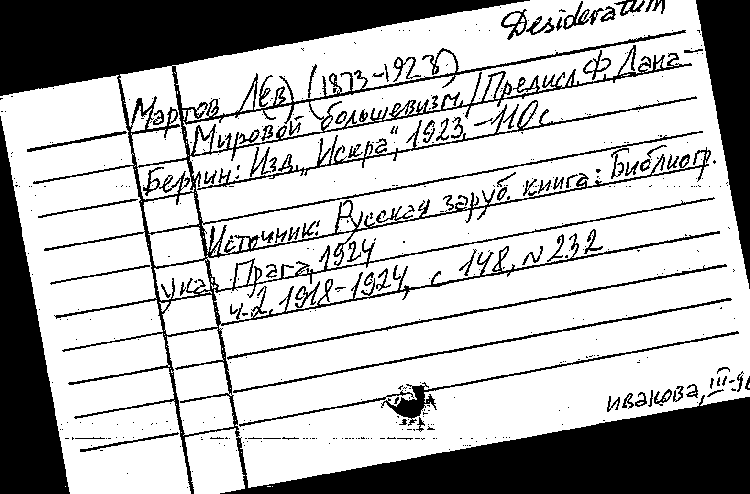 Desideratum
Мартов, Л(ев) (1873-1923)
Мировой большевизм. / Предисл. Ф. Дана -
Берлин: Изд. „Искра“, 1923. - 110 с
Источник: Русская заруб. книга: Библиогр.
указ Прага, 1924
ч.2. 1918-1924, с 148, N 232
ивакова, III-96